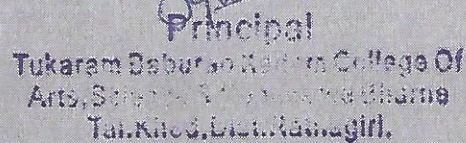 Principal
Tukaram Baburao Kadam College Of
Arts, Science & Commerce Bharne
Tal.Khed, Dist.Ratnagiri.